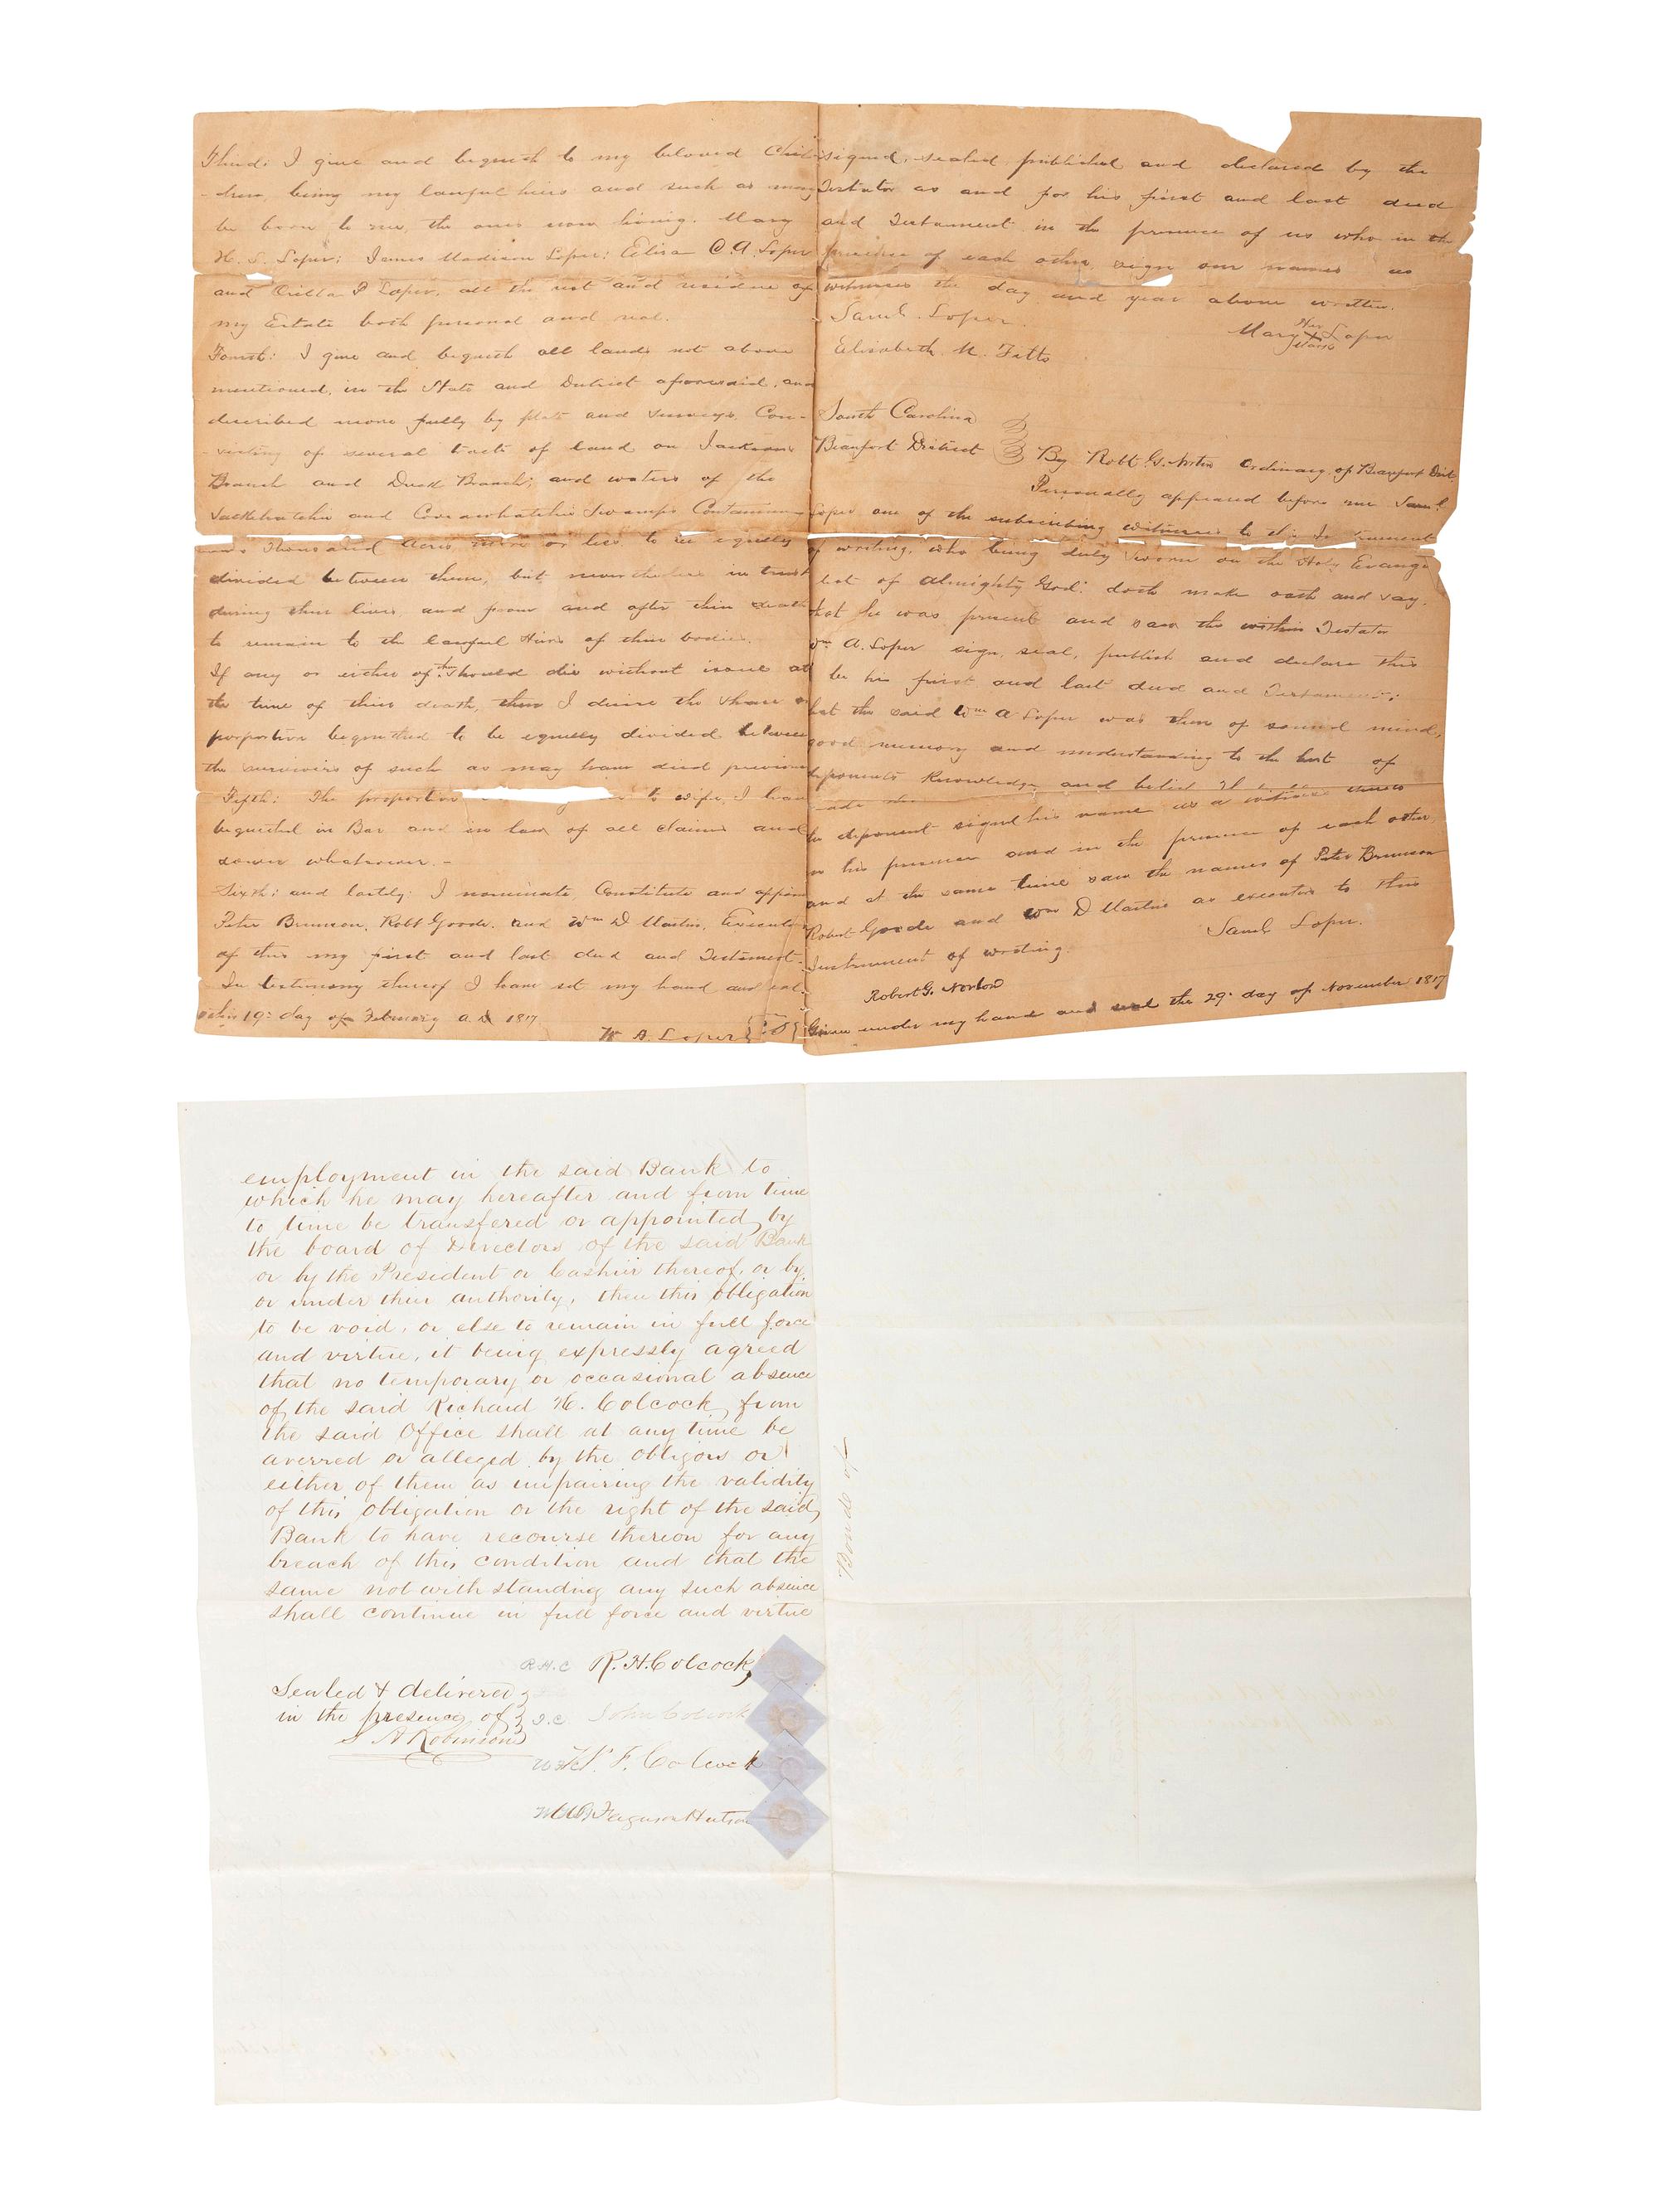 Third: I give and bequeth to my beloved Chil-
-dren, being my lawful heirs and such as may
be born to me, the ones now living. Mary
H. S. Loper; James Madison Loper; Eliza C. A. Loper
and Orilla P Loper, all the rest and residue of
my Estate both personal and real.
Fourth: I give and bequeth all lands not above
mentioned, in the State and District aforesaid, and
described more fully by plats and surveys. Con-
-sisting of several tracts of land on Jacksons
Branch and Duck Branch; and waters of the
Salkehatchie and Coosawhatchie Swamps Containing
Thousand Acres more or less to be equelly
divided between them, but nevertheless in trust
during their lives, and from and after their death
to remain to the lawful Heirs of their bodies.
If any or either of them should die without issue at
the time of their death, then I desire the share or
proportion bequethed to be equelly divided between
the survivors of such as may have died previous
Fifth: The proportion to wife, I have
bequethed in Bar and in law of all claims and
dower whatsoever. -
Sixth: and lastly: I nominate Constitute and appoint
Peter Brunson, Robt Goode. and Wm D Martin, Executors
of this my first and last deed and Testament.
In testimony thereof I have set my hand and seal
this 19th day of February A. D 1817
W A. Loper {LS}
signed, sealed published and declared by the
Testator as and for his first and last deed
and Testament in the presence of us who in the
presence of each other sign our names as
witnesses the day and year above written.
Saml. Loper.
Mary Her X Mark Loper
Elizabeth M. Fitts
South Carolina
Beaufort District
By Robt G. Norton Ordinary of Beaufort Dist.
Personally appeared before me Saml.
Loper one of the subscribing witnesses to this Instrument
of writing, who being duly sworn on the Holy Evange
list of Almighty God: doth make oath and say,
that he was present and saw the within Testator
Wm A. Loper sign, seal, publish and declare this
to be his first and last deed and Testament;
that the said Wm A Loper was then of sound mind,
good memory and understanding to the best of
deponents knowledge and belief
the deponent signed his name as a witness
in his presence and in the presence of each other,
and at the same time saw the names of Peter Brunson
Robert Goode and Wm D Martin as executors to this
Instrument of writing.
Saml Loper.
Robert G. Norton
Given under my hand and seal the 29th day of November 1817
employment in the said Bank to
which he may hereafter and from time
to time be transfered or appointed by
the board of Directors of the said Bank
or by the President or Cashier thereof, or by
or under their authority, then this obligation
to be void, or else to remain in full force
and virtue, it being expressly agreed
that no temporary or occasional absence
of the said Richard H. Colcock from
the said Office shall at any time be
averred or alleged by the obligors or
either of them as impairing the validity
of this obligation or the right of the said
Bank to have recourse thereon for any
breach of this condition and that the
same notwithstanding any such absence
shall continue in full force and virtue
R.H.C R. H. Colcock
Sealed & delivered
in the presence of J.C John Colcock
S A Robinson
W. F. Colcock
W Ferguson Hutson
Bond of